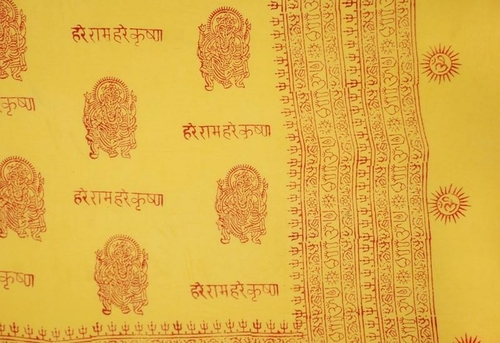 हरे राम हरे कृष्ण
कृष्ण
हरे राम हरे कृष्ण
हरे राम हरे कृष्ण
कृष्ण
हरे राम हरे कृष्ण